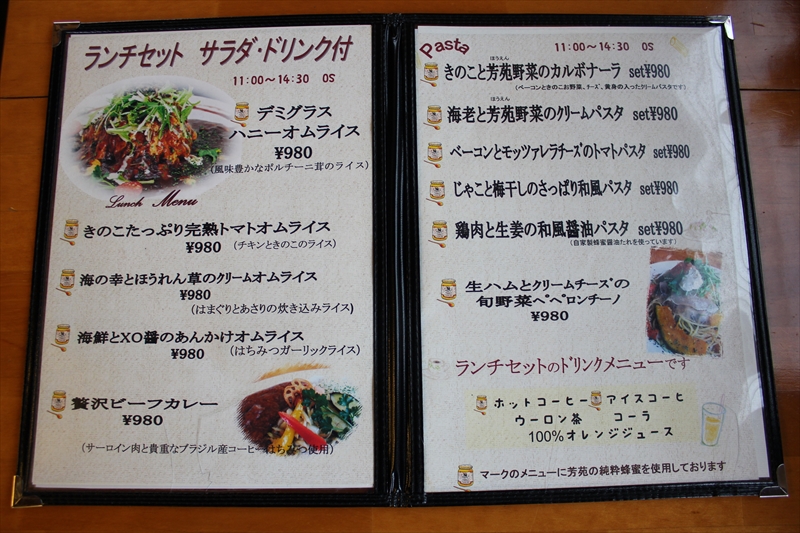 ランチセット サラダ・ドリンク付
11:00～14:30 OS
デミグラス
ハニーオムライス
¥980
(風味豊かなポルチーニ茸のライス)
Lunch Menu
きのこたっぷり完熟トマトオムライス
¥980 (チキンときのこのライス)
海の幸とほうれん草のクリームオムライス
¥980
(はまぐりとあさりの炊き込みライス)
海鮮とXO醬のあんかけオムライス
¥980 (はちみつガーリックライス)
贅沢ビーフカレー
¥980
(サーロイン肉と貴重なブラジル産コーヒーはちみつ使用)
Pasta
11:00～14:30 OS
ほうえん
きのこと芳苑野菜のカルボナーラ set¥980
(ベーコンときのこお野菜、チーズ、黄身の入ったクリームパスタです)
ほうえん
海老と芳苑野菜のクリームパスタ set¥980
ベーコンとモッツァレラチーズのトマトパスタ set¥980
じゃこと梅干しのさっぱり和風パスタ set¥980
鶏肉と生姜の和風醤油パスタ set¥980
(自家製蜂蜜醤油たれを使っています)
生ハムとクリームチーズの
旬野菜ペペロンチーノ
¥980
ランチセットのドリンクメニューです
ホットコーヒー アイスコーヒ
ウーロン茶 コーラ
100%オレンジジュース
マークのメニューに芳苑の純粋蜂蜜を使用しております